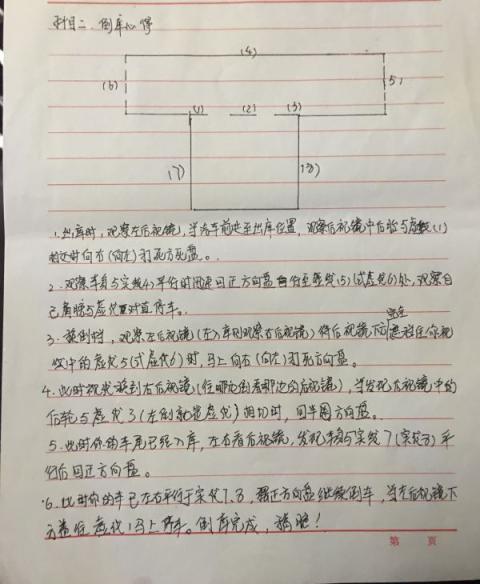 科目二、倒库心得
(4)
(6)
(5)
(1)
(2)
(3)
(7)
(8)
1.出库时,观察左后视镜,当汽车前走至出库位置,观察后视镜中后轮与虚线(1)
时向右(向左)打死方向盘。
2.观察车身与实线(4)平行时迅速回正方向盘 行至虚线(5)(或虚线6)处,观察自
己肩膀与虚线 对直停车。
3.挂倒档,观察左后视镜(左入库则观察右后视镜)待后视镜下沿 遮挡住你视
线中的虚线5(或虚线6)时,马上向右(向左)打死方向盘。
4.此时视线移到右后视镜(往哪边倒看哪边的后视镜),当发现右视镜中的
后轮与虚线3(左倒就是虚线1)相切时,回半圈方向盘。
5.此时你的车尾已经入库,左右看后视镜,发现车身与实线7(实线8)平
行后回正方向盘。
6.此时你的车已左右平行于实线7、8,摆正方向盘继续倒车,当左后视镜下
方盖住虚线1马上停车。倒库完成,撒脸!
第 页